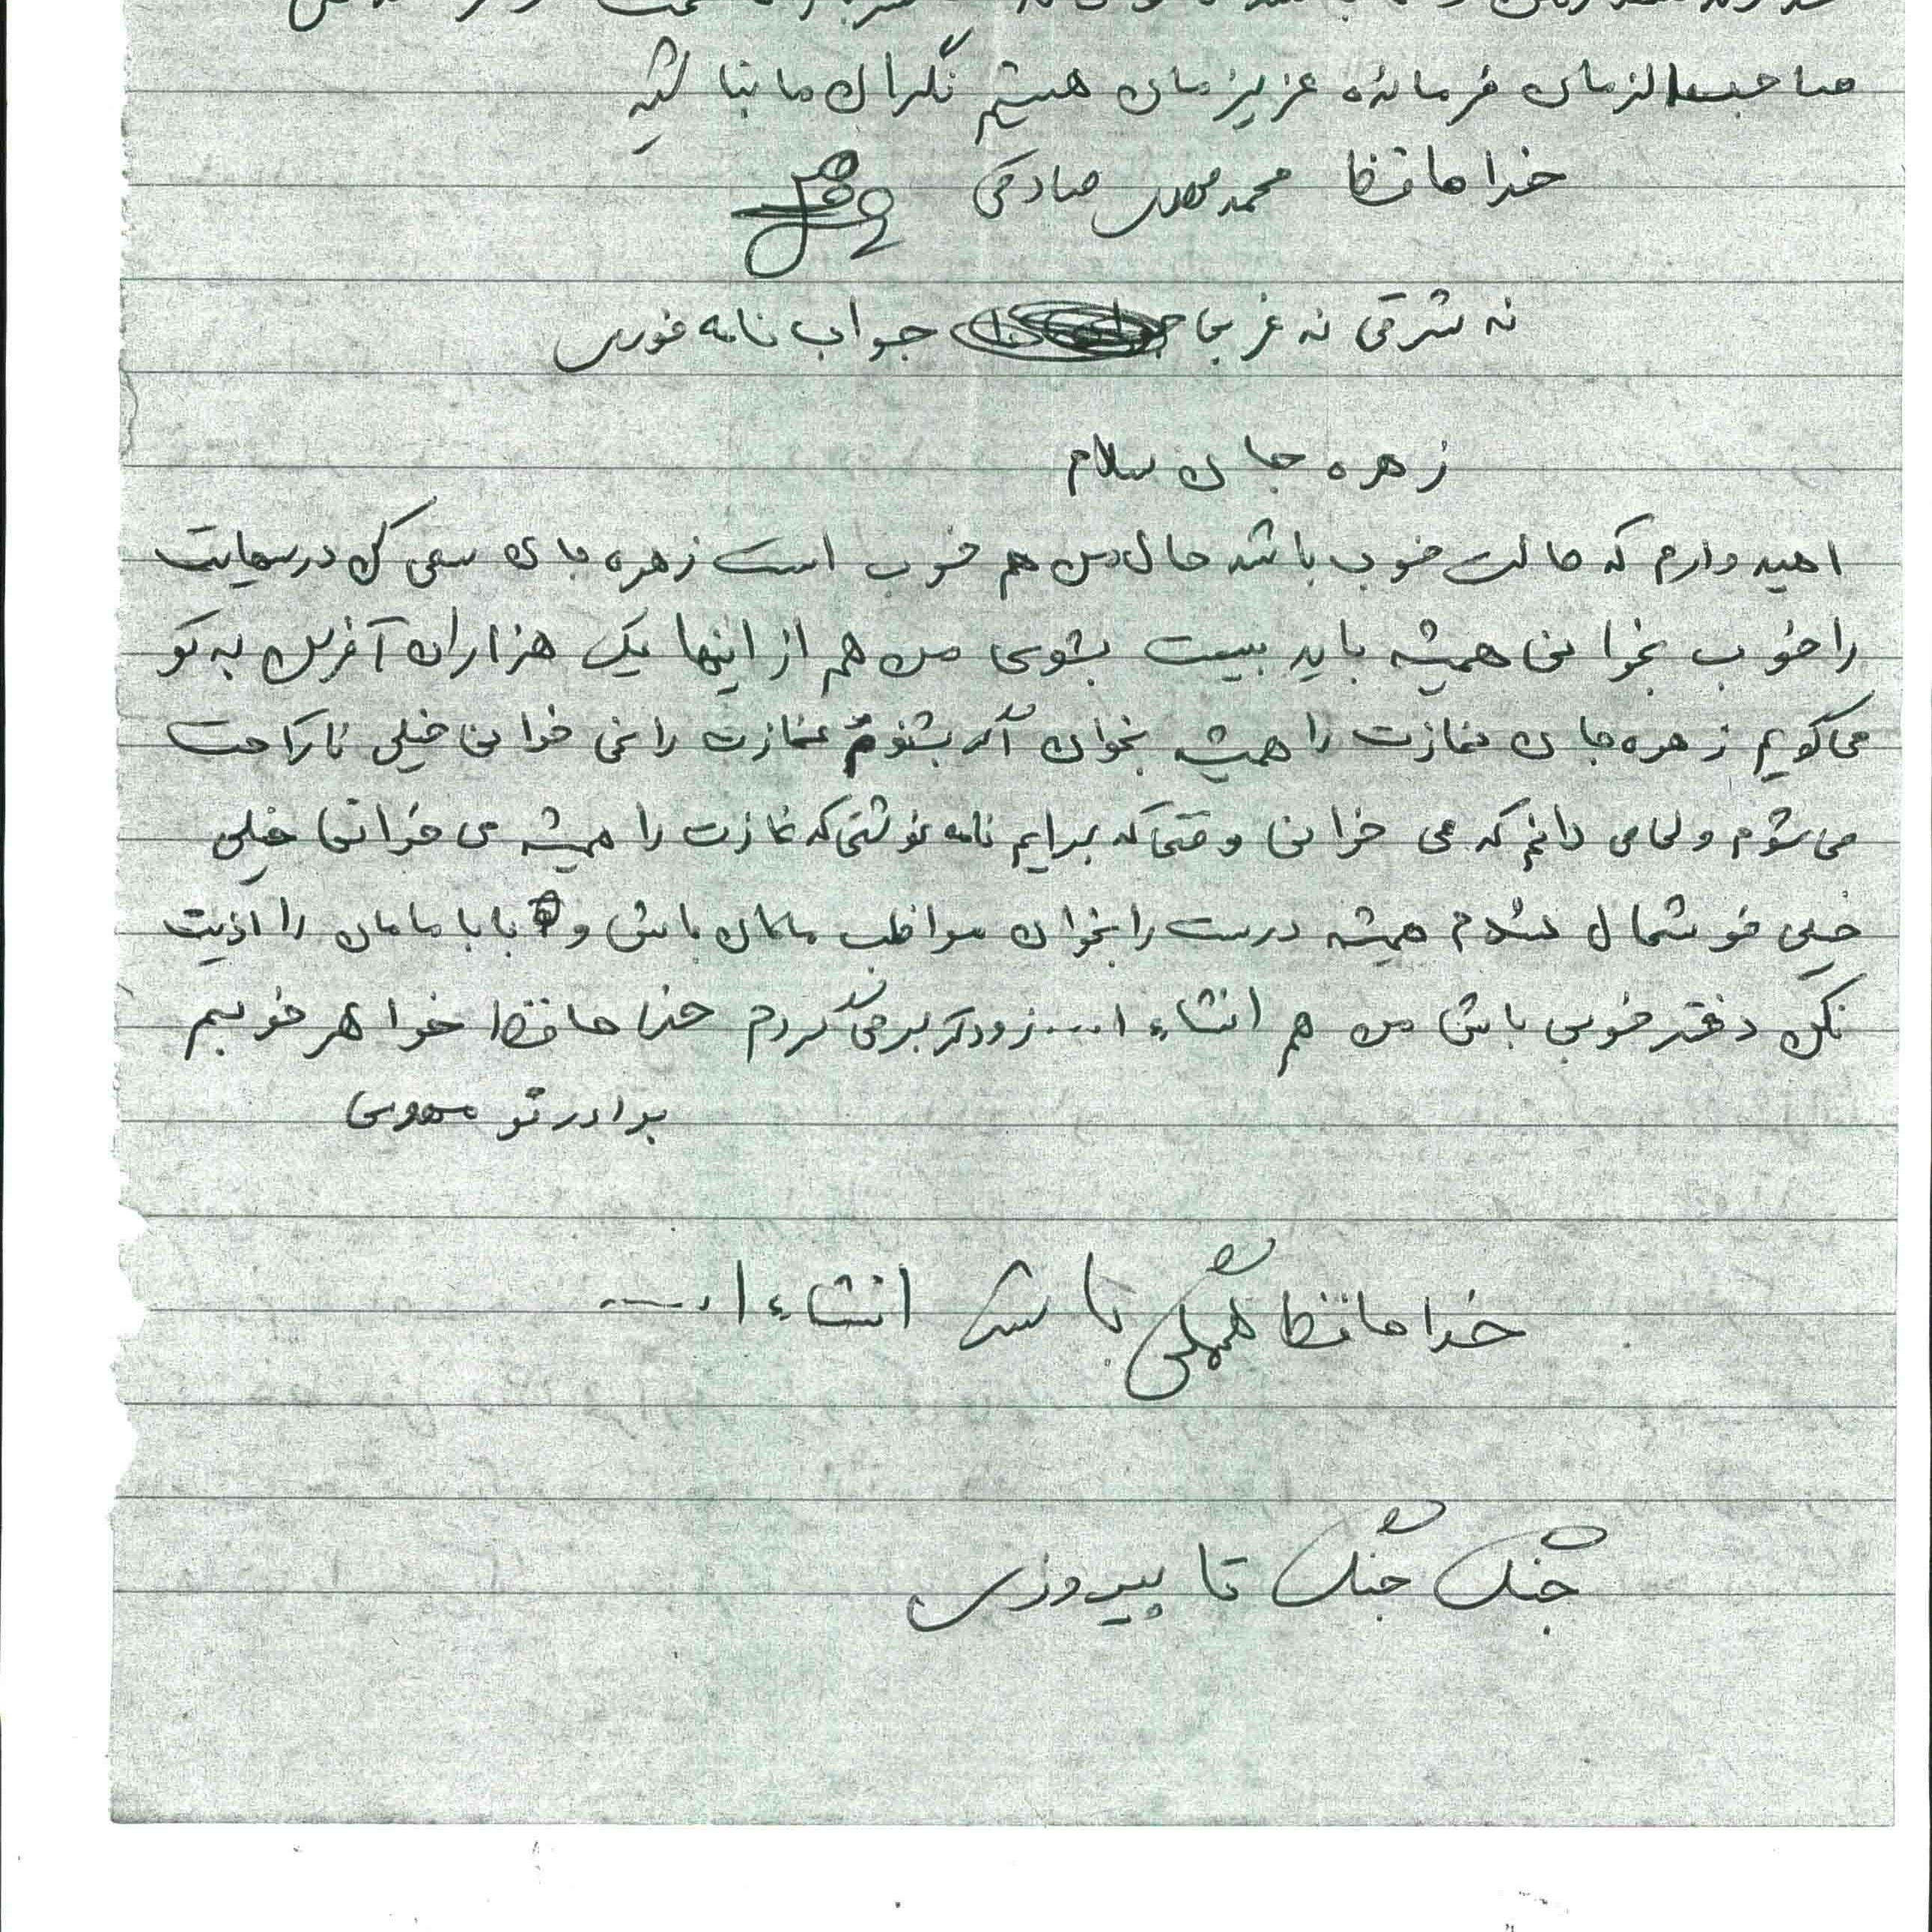 صاحب الزمان فرمانده عزیزمان هستیم نگران ما نباشید
خداحافظ محمدمهدی صادقی
نه شرقی نه غربی جواب نامه فوری
زهره جان سلام
امیدوارم که حالت خوب باشد حال من هم خوب است زهره جان سعی کن درسهایت
را خوب بخوانی همیشه باید بیست بشوی من هم از اینها یک هزاران آفرین به تو
می گویم زهره جان نمازت را همیشه بخوان اگر بشنوم نمازت را نمی خوانی خیلی ناراحت
می شوم ولی می دانم که می خوانی وقتی که برایم نامه نوشتی که نمازت را همیشه می خوانی خیلی
خیلی خوشحال شدم همیشه درست را بخوان مواظب مامان باش و بابا مامان را اذیت
نکن دختر خوبی باش من هم انشاء ا... زودتر برمی گردم خداحافظ خواهر خوبم
برادر تو مهدی
خداحافظ همگی باش انشاء ا...
جنگ جنگ تا پیروزی